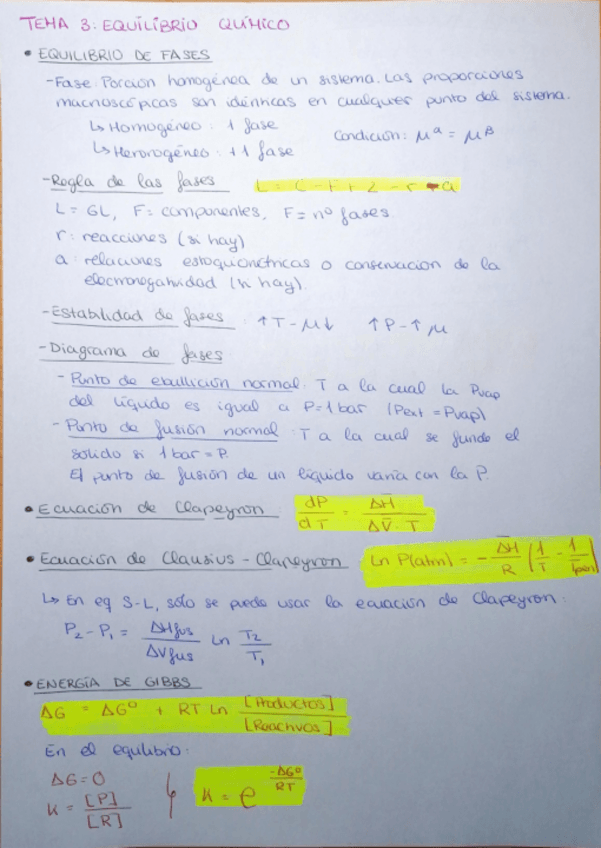 TEMA 3: EQUILIBRIO QUÍMICO
• EQUILIBRIO DE FASES
- Fase: Porción homogénea de un sistema. Las proporciones
macroscópicas son idénticas en cualquier punto del sistema.
↳ Homogéneo: 1 fase
Condición: μᵅ = μᵝ
↳ Heterogéneo: +1 fase
- Regla de las fases L = C - F + 2 - r - a
L = GL, F = componentes, F = nº fases
r: reacciones (si hay)
a: relaciones estequiométricas o conservación de la
electronegatividad (si hay).
- Estabilidad de fases: ↑T - μ↓ ↑P - ↑μ
- Diagrama de fases
- Punto de ebullición normal: T a la cual la Pvap
del líquido es igual a P=1 bar (Pext = Pvap)
- Punto de fusión normal: T a la cual se funde el
sólido si 1 bar = P.
El punto de fusión de un líquido varía con la P.
• Ecuación de Clapeyron dP/dT = ΔH̄/ΔV̄·T
• Ecuación de Clausius - Clapeyron Ln P(atm) = - ΔH̄/R (1/T - 1/Tpen)
↳ En eq S-L, sólo se puede usar la ecuación de Clapeyron:
P₂ - P₁ = ΔHfus/ΔVfus Ln T₂/T₁
• ENERGÍA DE GIBBS
ΔG = ΔG⁰ + RT Ln [Productos]/[Reactivos]
En el equilibrio:
ΔG = 0
K = [P]/[R] K = e^(-ΔG⁰/RT)